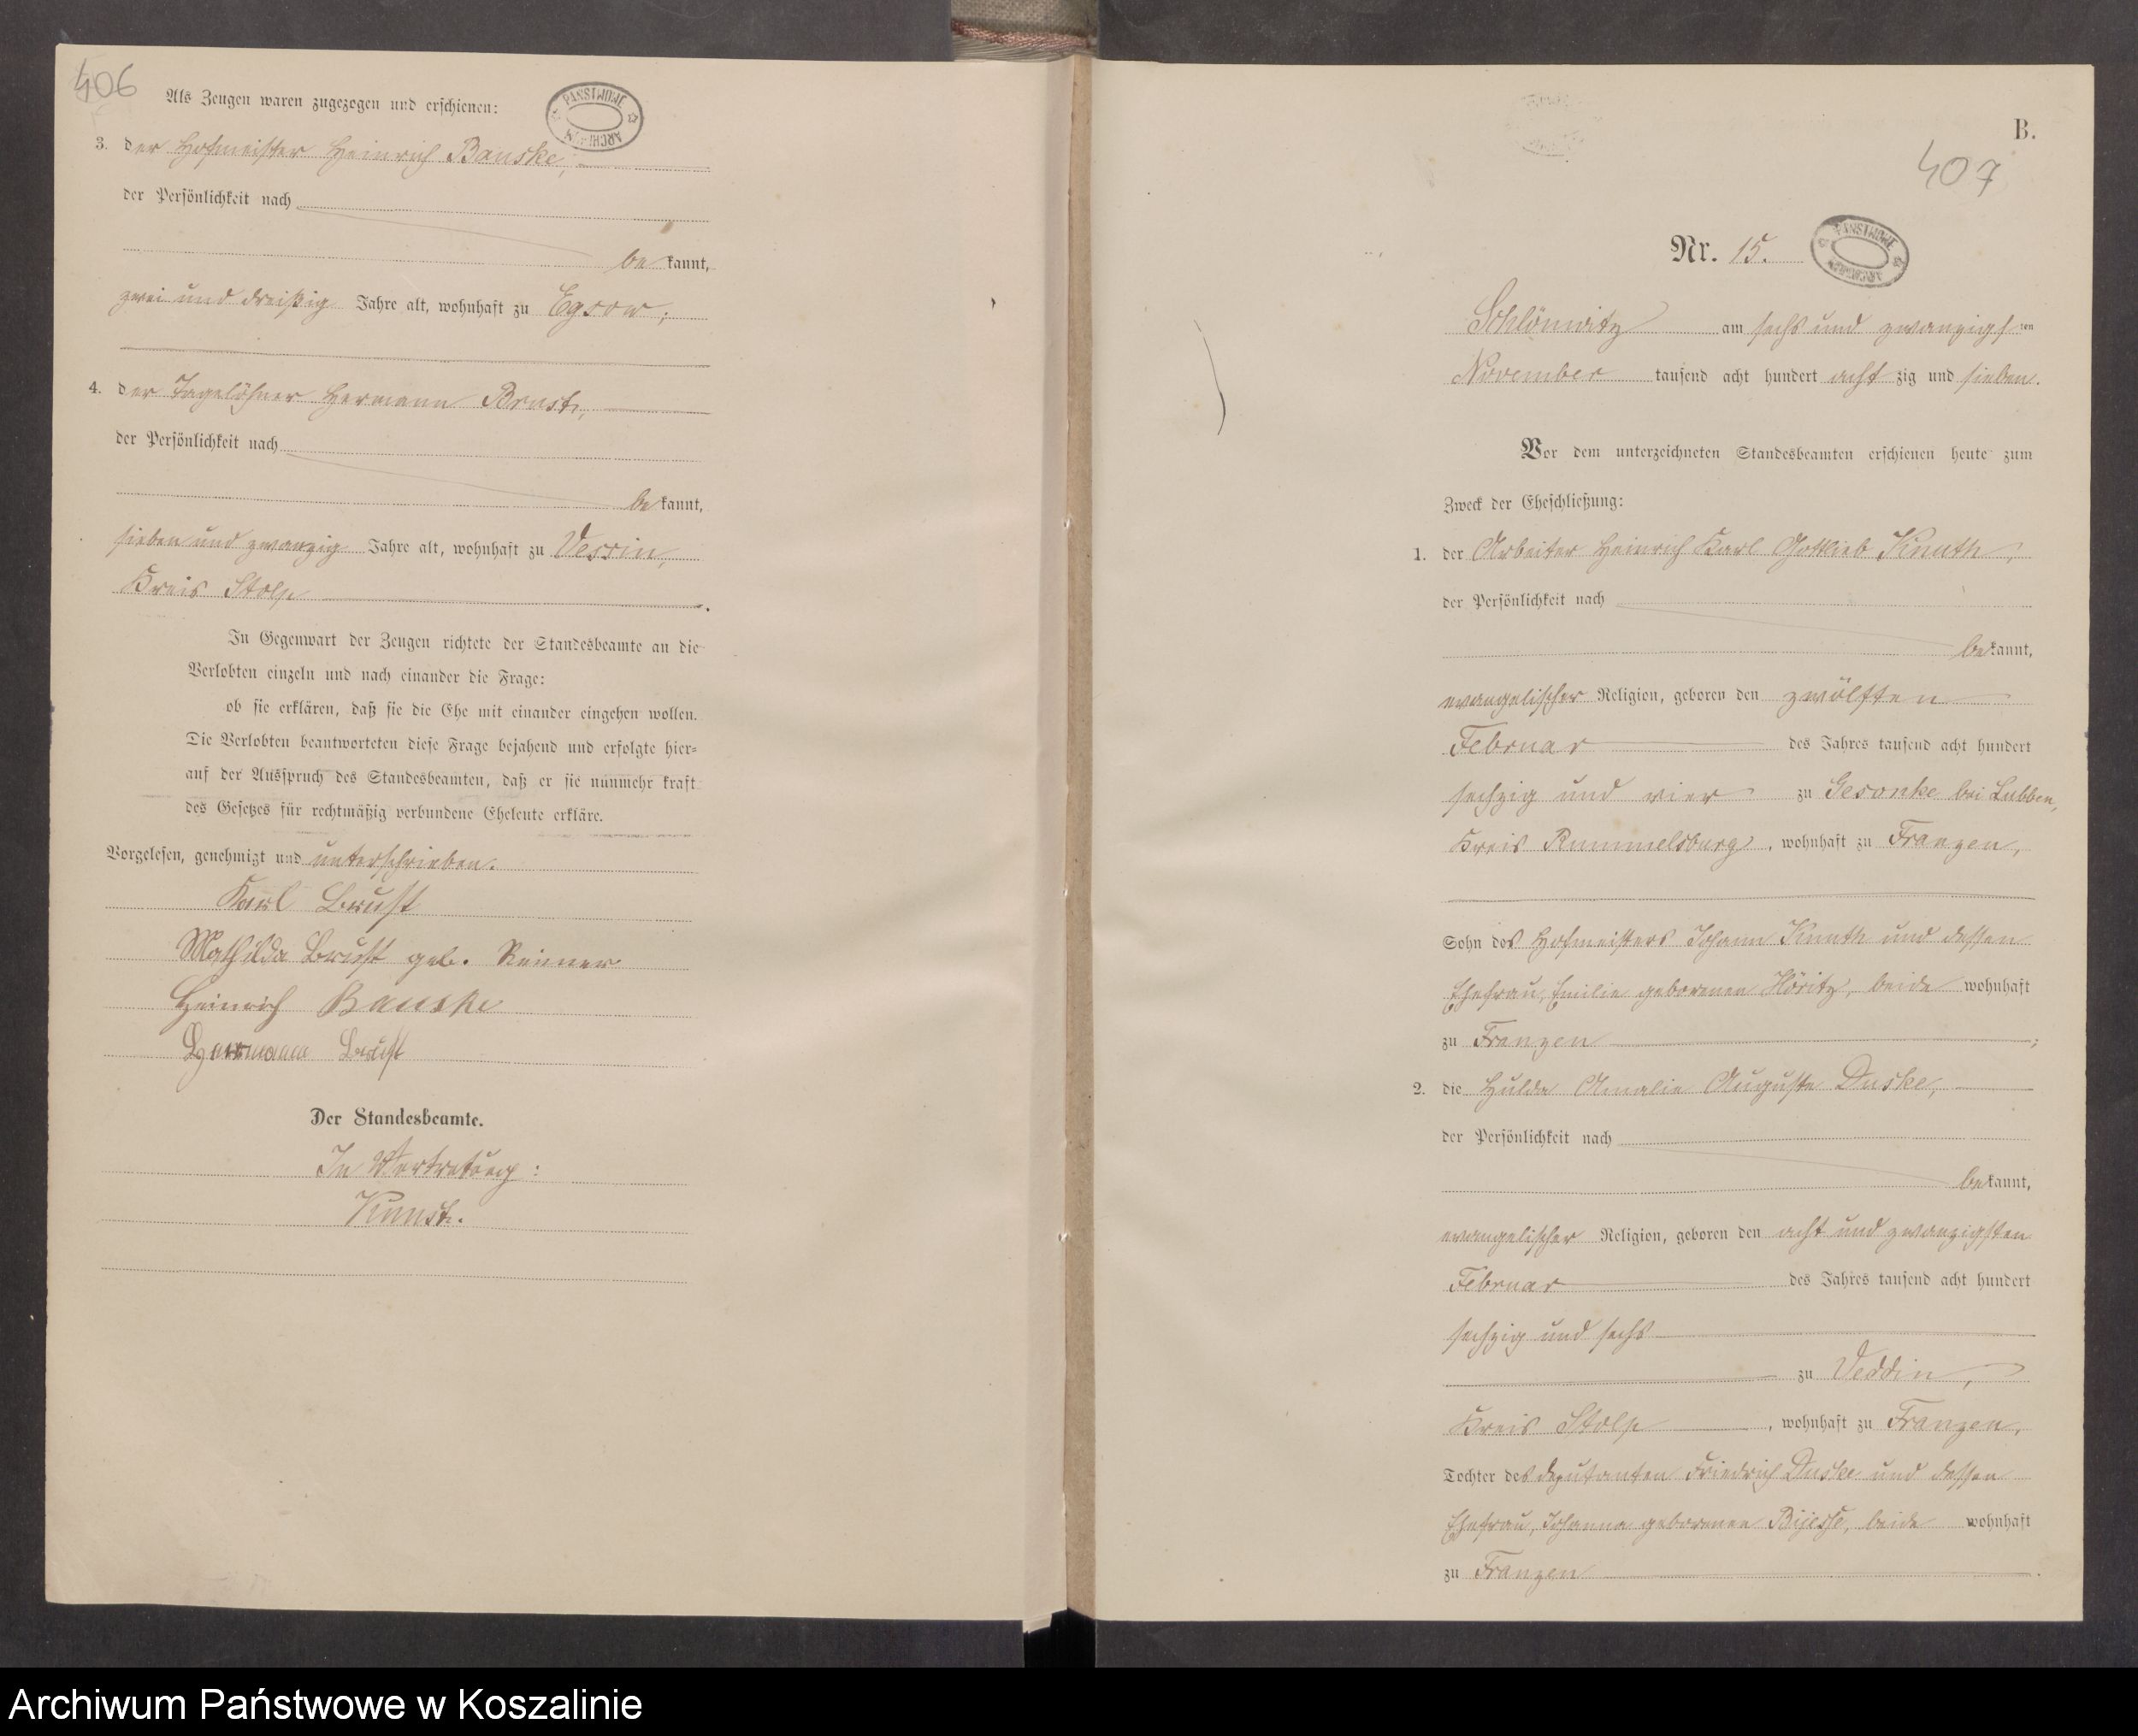 406
Als Zeugen waren zugezogen und erschienen:
PAŃSTWOWE ARCHIWUM
3. der Hofmeister Heinrich Banske,
der Persönlichkeit nach
bekannt,
zwei und dreißig Jahre alt, wohnhaft zu Egsow;
4. der Tagelöhner Hermann Brust,
der Persönlichkeit nach
bekannt,
sieben und zwanzig Jahre alt, wohnhaft zu Vessin,
Kreis Stolp.
In Gegenwart der Zeugen richtete der Standesbeamte an die
Verlobten einzeln und nach einander die Frage:
ob sie erklären, daß sie die Ehe mit einander eingehen wollen.
Die Verlobten beantworteten diese Frage bejahend und erfolgte hier=
auf der Ausspruch des Standesbeamten, daß er sie nunmehr kraft
des Gesetzes für rechtmäßig verbundene Eheleute erkläre.
Vorgelesen, genehmigt und unterschrieben.
Karl Brust
Mathilda Brust geb. Reimer
Heinrich Banske
Hermann Brust
Der Standesbeamte.
In Vertretung:
Kunst.
B.
407
Nr. 15.
PAŃSTWOWE ARCHIWUM
Schlönwitz am sechs und zwanzigsten
November tausend acht hundert achtzig und sieben.
Vor dem unterzeichneten Standesbeamten erschienen heute zum
Zweck der Eheschließung:
1. der Arbeiter Heinrich Karl Gottlieb Knuth,
der Persönlichkeit nach
bekannt,
evangelischer Religion, geboren den zwölften
Februar des Jahres tausend acht hundert
sechzig und vier zu Gesonke bei Lubben,
Kreis Rummelsburg, wohnhaft zu Franzen,
Sohn des Hofmeisters Johann Knuth und dessen
Ehefrau, Emilie geborenen Höritz, beide wohnhaft
zu Franzen;
2. die Hulda Amalie Auguste Duske,
der Persönlichkeit nach
bekannt,
evangelischer Religion, geboren den acht und zwanzigsten
Februar des Jahres tausend acht hundert
sechzig und sechs
zu Veddin,
Kreis Stolp, wohnhaft zu Franzen,
Tochter des Deputanten Friedrich Duske und dessen
Ehefrau, Johanna geborenen beide wohnhaft
zu Franzen.
Archiwum Państwowe w Koszalinie